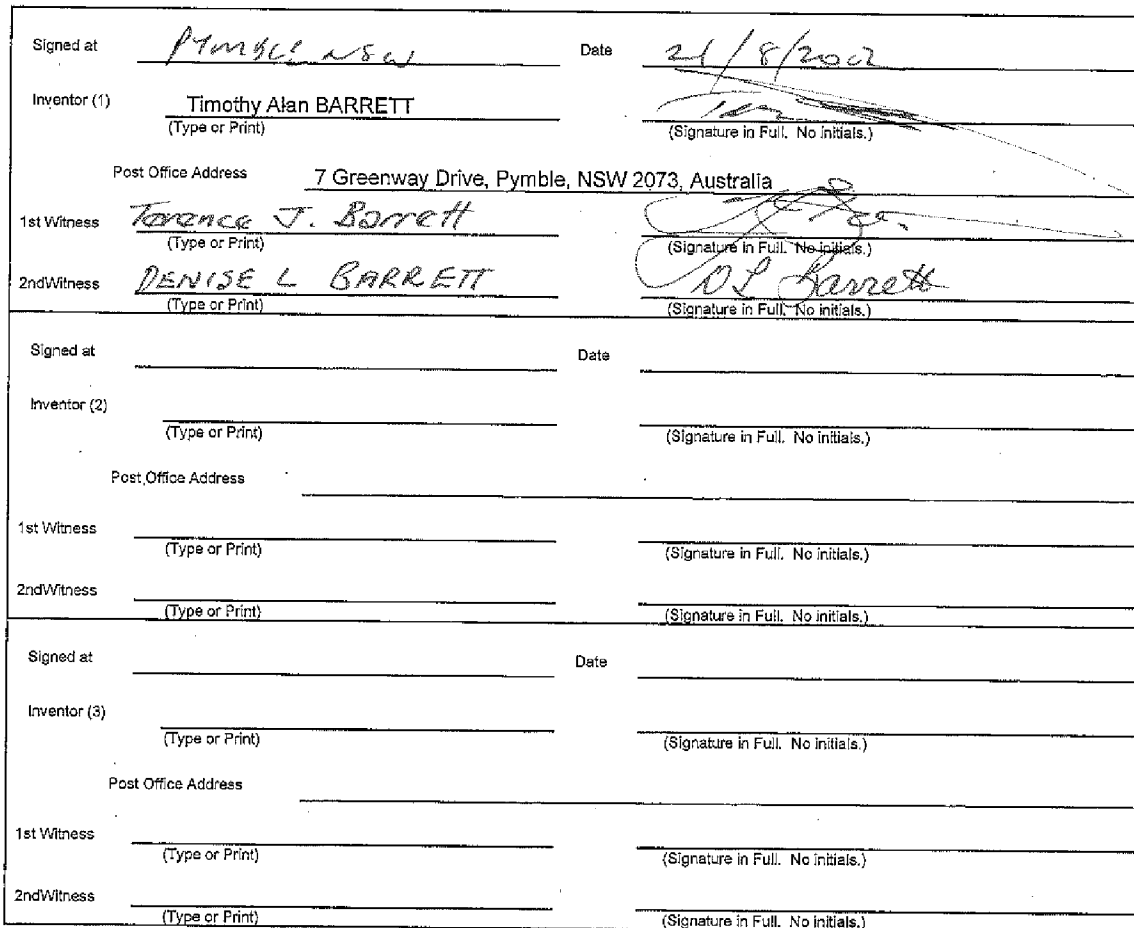 Signed at PYMBLE NSW Date 21/8/2002
Inventor (1) Timothy Alan BARRETT
(Type or Print) (Signature in Full. No initials.)
Post Office Address 7 Greenway Drive, Pymble, NSW 2073, Australia
1st Witness Terence J. Barrett
(Type or Print) (Signature in Full. No initials.)
2ndWitness DENISE L BARRETT DL Barrett
(Type or Print) (Signature in Full. No initials.)
Signed at Date
Inventor (2)
(Type or Print) (Signature in Full. No initials.)
Post Office Address
1st Witness
(Type or Print) (Signature in Full. No initials.)
2ndWitness
(Type or Print) (Signature in Full. No initials.)
Signed at Date
Inventor (3)
(Type or Print) (Signature in Full. No initials.)
Post Office Address
1st Witness
(Type or Print) (Signature in Full. No initials.)
2ndWitness
(Type or Print) (Signature in Full. No initials.)